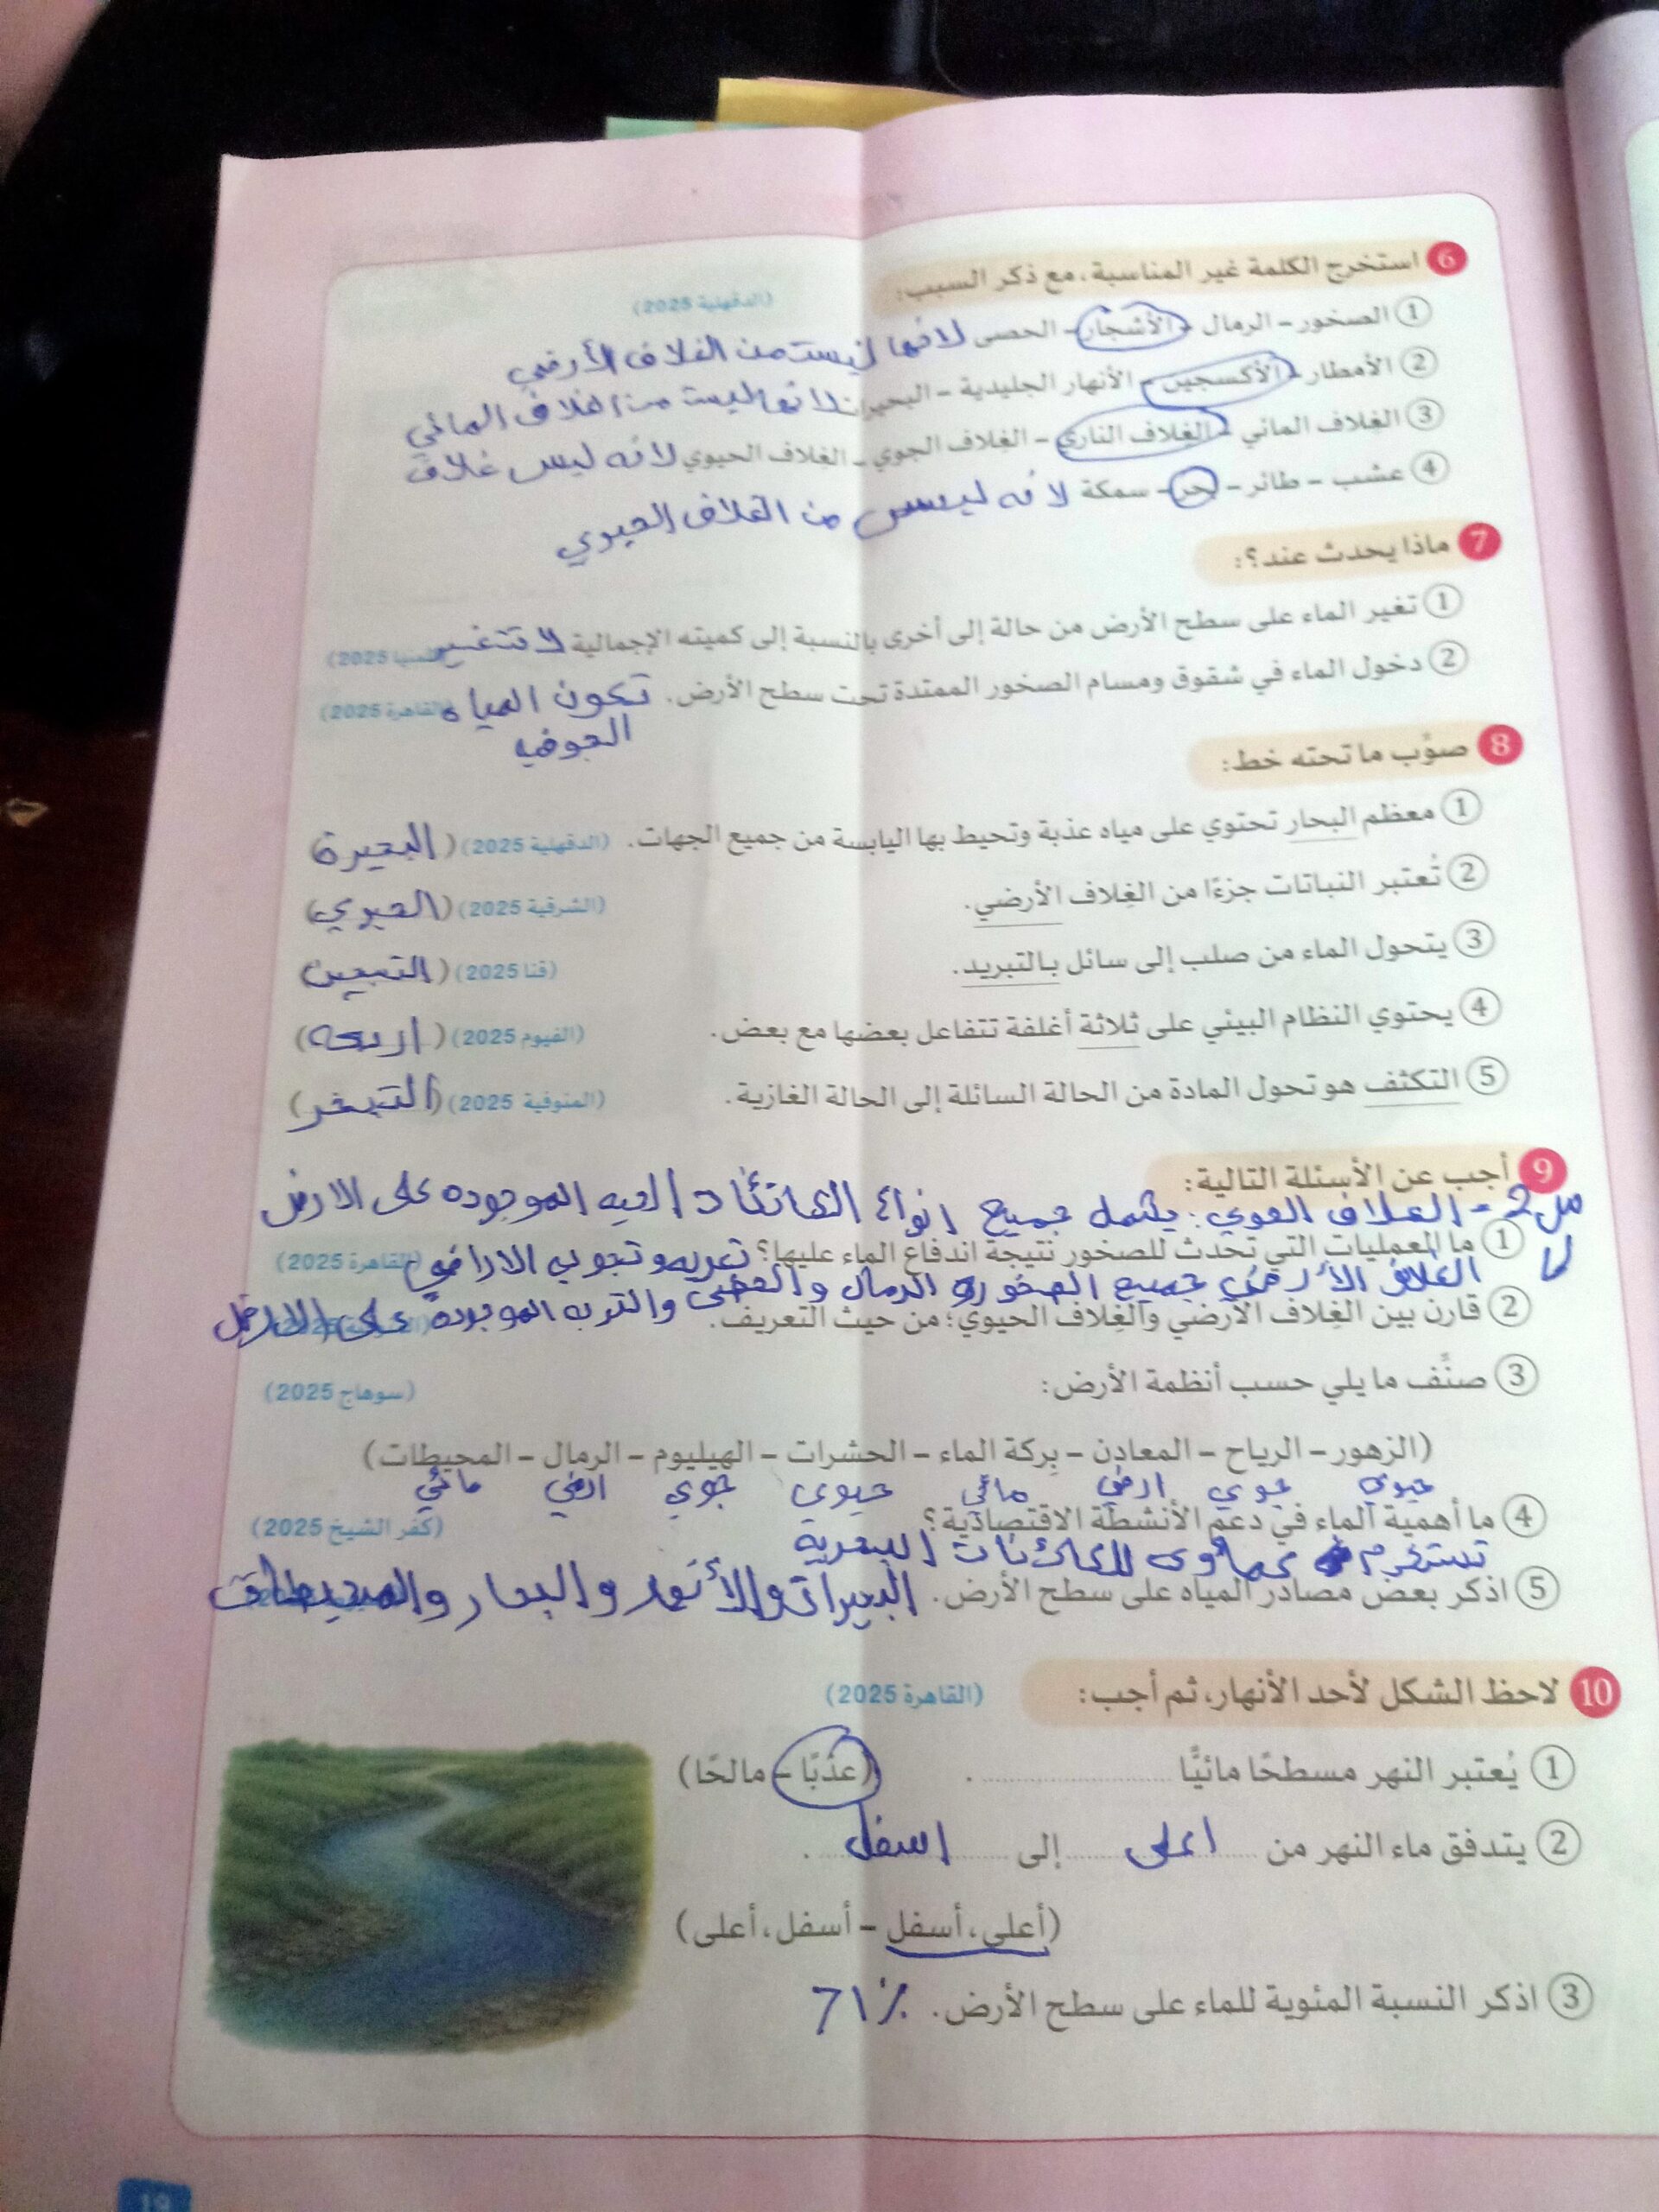 6 استخرج الكلمة غير المناسبة، مع ذكر السبب:
(الدقهلية 2025)
① الصخور – الرمال – الأشجار – الحصى لانها ليست من الغلاف الأرضي
② الأمطار – الأكسجين – الأنهار الجليدية – البحيرات لانها ليست من الغلاف المائي
③ الغلاف المائي – الغلاف الناري – الغلاف الجوي – الغلاف الحيوي لانه ليس غلاف
④ عشب – طائر – بحر – سمكة لانه ليس من الغلاف الحيوي
7 ماذا يحدث عند؟:
① تغير الماء على سطح الأرض من حالة إلى أخرى بالنسبة إلى كميته الإجمالية لا تتغير (المنيا 2025)
② دخول الماء في شقوق ومسام الصخور الممتدة تحت سطح الأرض. تكون المياه (القاهرة 2025)
الجوفيه
8 صوِّب ما تحته خط:
① معظم البحار تحتوي على مياه عذبة وتحيط بها اليابسة من جميع الجهات. (الدقهلية 2025) (البحيرة)
② تُعتبر النباتات جزءًا من الغِلاف الأرضي. (الشرقية 2025) (الحيوي)
③ يتحول الماء من صلب إلى سائل بالتبريد. (قنا 2025)
④ يحتوي النظام البيئي على ثلاثة أغلفة تتفاعل بعضها مع بعض. (الفيوم 2025) (اربعه)
⑤ التكثف هو تحول المادة من الحالة السائلة إلى الحالة الغازية. (المنوفية 2025) (التبخر)
9 أجب عن الأسئلة التالية:
س2 - الغلاف الحيوي: يشمل جميع انواع الكائنات الحيه الموجوده على الارض
① ما العمليات التي تحدث للصخور نتيجة اندفاع الماء عليها؟ تعريه و تجوية الاراضي (القاهرة 2025)
الغلاف الأرضي جميع الصخور و الرمال والحصى والتربه الموجودة على الارض
② قارن بين الغِلاف الأرضي والغِلاف الحيوي؛ من حيث التعريف.
③ صنِّف ما يلي حسب أنظمة الأرض: (سوهاج 2025)
(الزهور – الرياح – المعادن – بِركة الماء – الحشرات – الهيليوم – الرمال – المحيطات)
حيوي جوي ارضي مائي حيوي جوي ارضي مائي
④ ما أهمية الماء في دعم الأنشطة الاقتصادية؟ (كفر الشيخ 2025)
تستخدم كمأوى للكائنات البحرية
⑤ اذكر بعض مصادر المياه على سطح الأرض. البحيرات والأنهار والبحار والمحيطات
10 لاحظ الشكل لأحد الأنهار، ثم أجب: (القاهرة 2025)
① يُعتبر النهر مسطحًا مائيًّا .......... . (عذبًا – مالحًا)
② يتدفق ماء النهر من اعلى إلى اسفل .
(أعلى، أسفل – أسفل، أعلى)
③ اذكر النسبة المئوية للماء على سطح الأرض. 71%
19